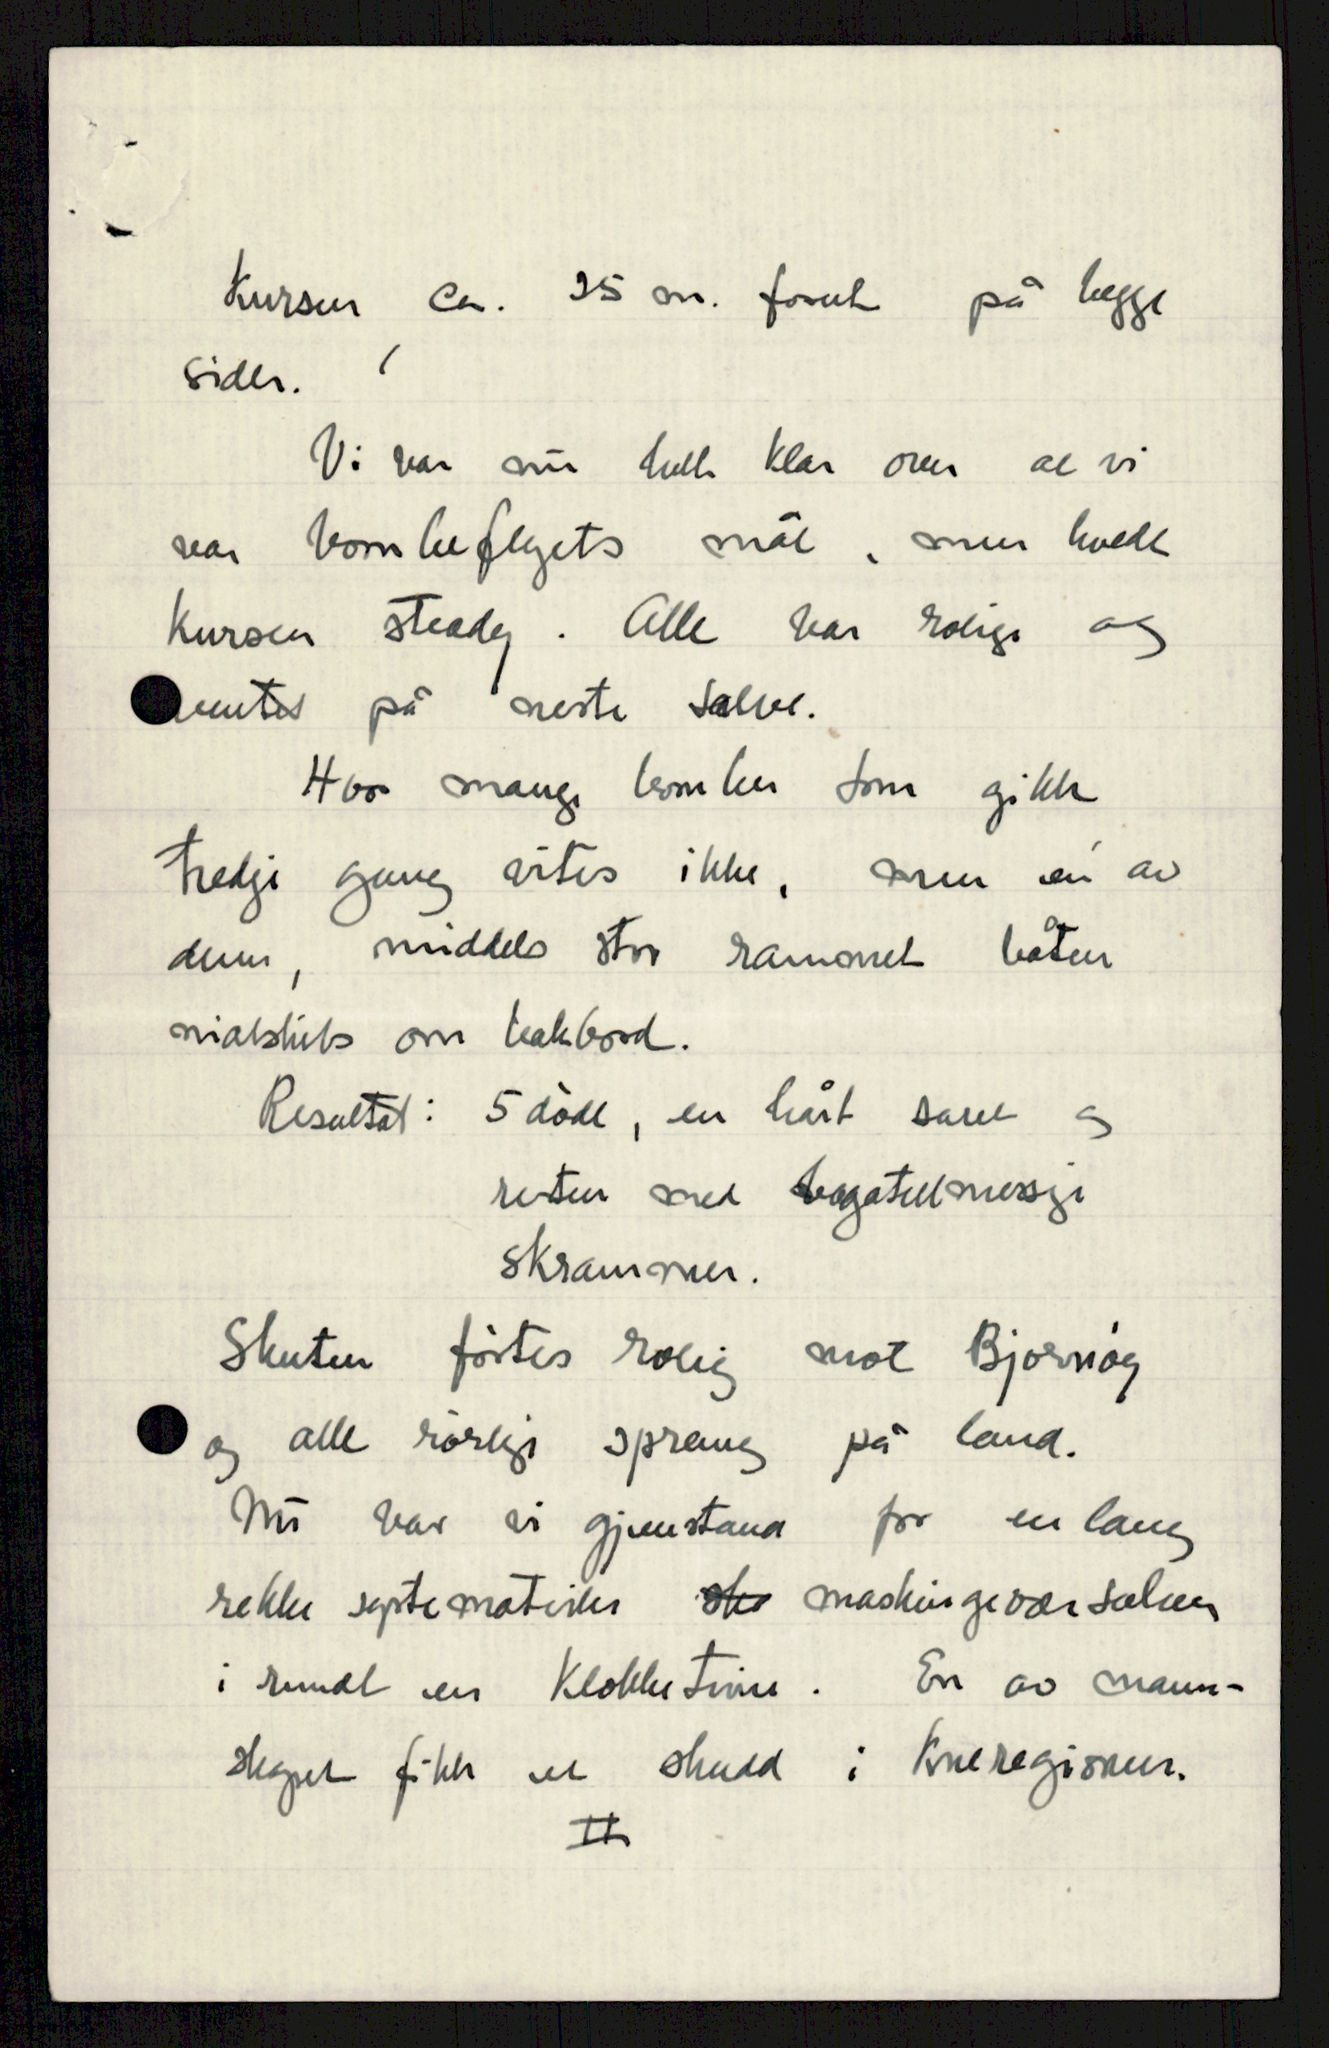 Kursen ca. 25 m. forut på begge
sider.
Vi var nu helt klar over at vi
var bombeflyets mål, men hvedt
kursen steady. Alle var rolige og
ventet på neste salve.
Hvor mange bomber som gikk
tredje gang vites ikke, men én av
dem, middels stor rammet båten
midtskibs om bakbord.
Resultat: 5 döde, en hårt saret og
resten med bagatellmessige
skrammer.
Skuten förtes rolig mot Bjornöy
og alle rörlige sprang på land.
Nu var vi gjenstand for en lang
rekke systematiske maskingeværsalver
i rundt en klokketime. En av mann-
skapet fikk et skudd i kneregionen.